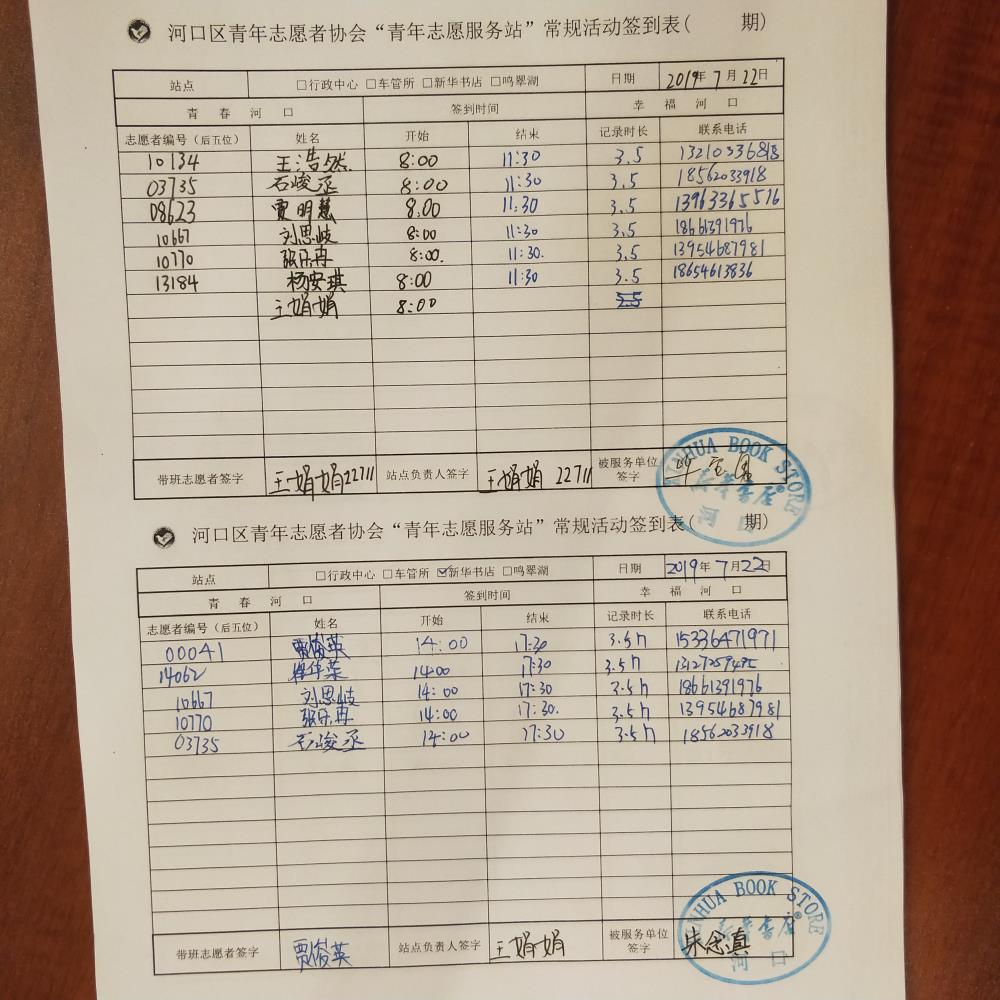 河口区青年志愿者协会“青年志愿服务站”常规活动签到表( 期)
站点 □行政中心 □车管所 □新华书店 □鸣翠湖 日期 2019年7月22日
青 春 河 口 签到时间 幸 福 河 口
志愿者编号（后五位） 姓名 开始 结束 记录时长 联系电话
10134 王浩然 8:00 11:30 3.5 13210336818
03735 石峻丞 8:00 11:30 3.5 18562033918
08623 贾明慧 8:00 11:30 3.5 13963365576
10667 刘思岐 8:00 11:30 3.5 18661391976
10770 张乐冉 8:00. 11:30. 3.5 13954687981
13184 杨安琪 8:00 11:30 3.5 18654613836
王娟娟 8:00
带班志愿者签字 王娟娟22711 站点负责人签字 王娟娟 22711 被服务单位签字
XINHUA BOOK STORE
新华书店
河口
河口区青年志愿者协会“青年志愿服务站”常规活动签到表( 期)
站点 □行政中心 □车管所 ☑新华书店 □鸣翠湖 日期 2019年7月22日
青 春 河 口 签到时间 幸 福 河 口
志愿者编号（后五位） 姓名 开始 结束 记录时长 联系电话
00041 贾俊英 14:00 17:30 3.5h 15336471971
14062 14:00 17:30 3.5h
10667 刘思岐 14:00 17:30 3.5h 18661391976
10770 张乐冉 14:00 17:30. 3.5h 13954687981
03735 石峻丞 14:00 17:30 3.5h 18562033918
带班志愿者签字 贾俊英 站点负责人签字 王娟娟 被服务单位签字 朱念真
XINHUA BOOK STORE
新华书店
河口